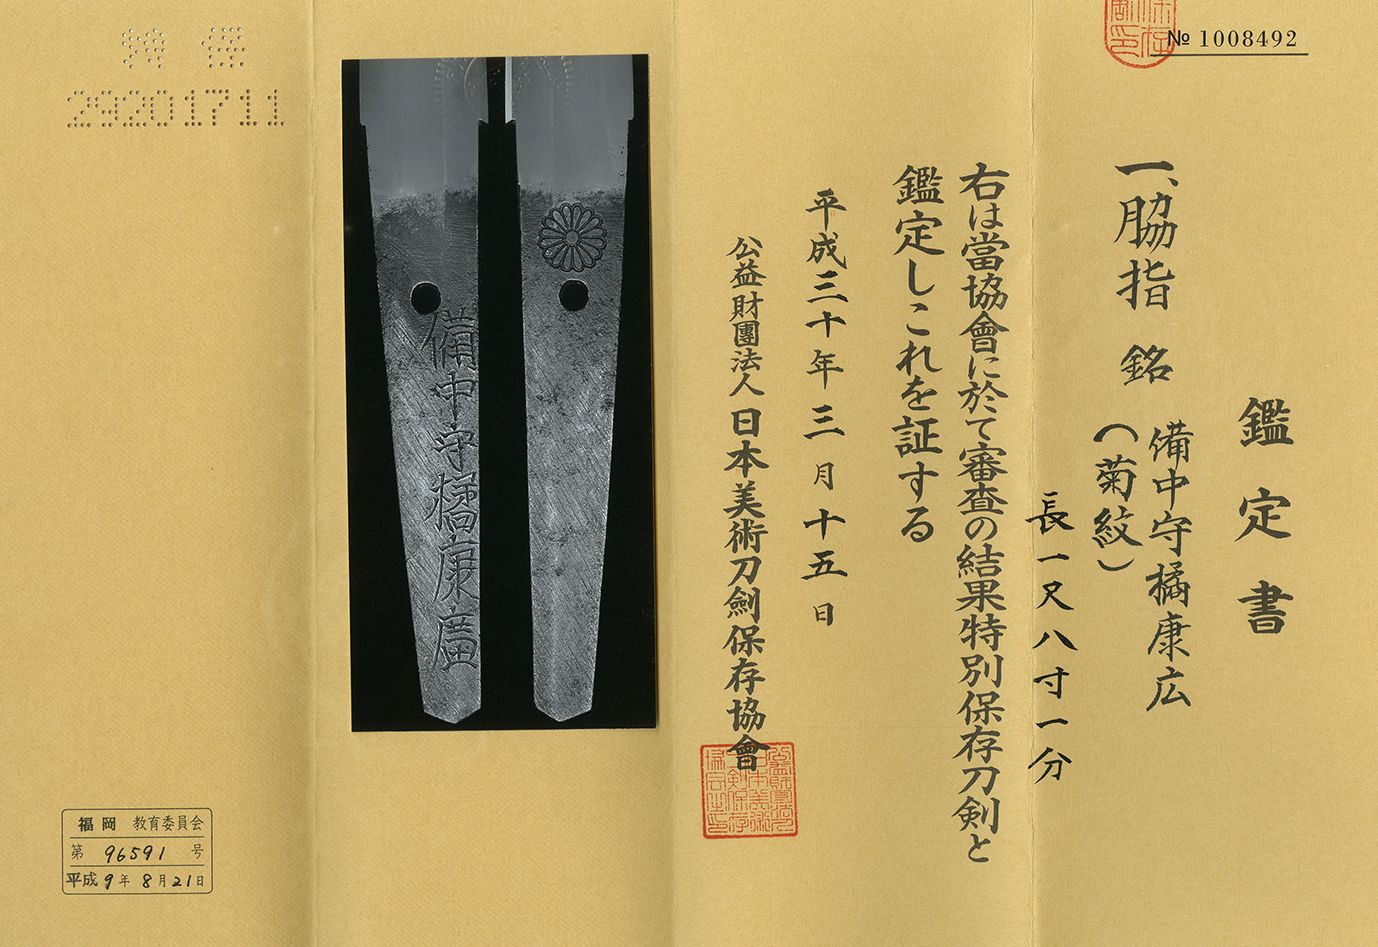 № 1008492
鑑定書
一、脇指 銘 備中守橘康広
(菊紋)
長一尺八寸一分
右は當協會に於て審査の結果特別保存刀剣と
鑑定しこれを証する
平成三十年三月十五日
公益財團法人 日本美術刀劍保存協會
備中守橘康廣
29201711
福岡 教育委員会
第 96591 号
平成 9年 8月21日